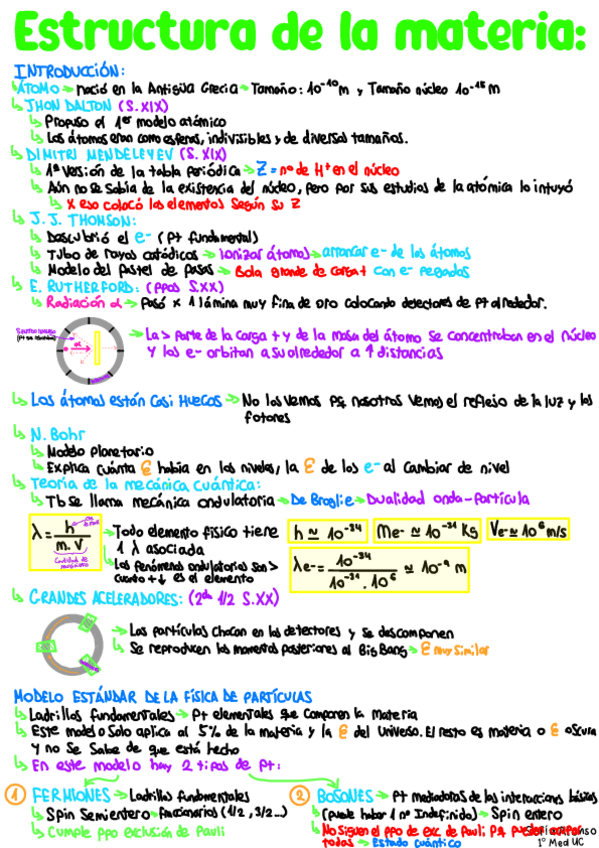 Estructura de la materia:
INTRODUCCIÓN:
ÁTOMO → nació en la Antigua Grecia → Tamaño: 10⁻¹⁰ m y Tamaño núcleo 10⁻¹⁵ m
↳ JHON DALTON (S.XIX)
↳ Propuso el 1er modelo atómico
↳ Los átomos eran como esferas, indivisibles y de diversos tamaños.
↳ DIMITRI MENDELEYEV (S. XIX)
↳ 1ª versión de la tabla periódica → Z = nº de H⁺ en el núcleo
↳ Aún no se sabía de la existencia del núcleo, pero por sus estudios de la atómica lo intuyó
↳ x eso colocó los elementos según su Z
↳ J. J. THOMSON:
↳ Descubrió el e⁻ (pt fundamental)
↳ Tubo de rayos catódicos → ionizar átomos → arrancar e⁻ de los átomos
↳ Modelo del Pastel de Pasas → Bola grande de carga + con e⁻ pegados
↳ E. RUTHERFORD: (ppos S.XX)
↳ Radiación α → Pasó x 1 lámina muy fina de oro colocando detectores de pt alrededor.
→ La > parte de la carga + y de la masa del átomo se concentraban en el núcleo
y los e⁻ orbitan a su alrededor a ≠ distancias
↳ Los átomos están casi HUECOS → No los vemos pq nosotros vemos el reflejo de la luz y los
fotones
↳ N. Bohr
↳ Modelo planetario
↳ Explica cuánta E había en los niveles, la E de los e⁻ al cambiar de nivel
↳ Teoría de la mecánica cuántica:
↳ Tb se llama mecánica ondulatoria → De Broglie → Dualidad onda-partícula
λ = h / m. v
→ Todo elemento físico tiene
1 λ asociada
↳ Los fenómenos ondulatorios son >
cuanto + ↓ es el elemento
h ≃ 10⁻³⁴
Me⁻ ≃ 10⁻³¹ Kg
Ve⁻ ≃ 10⁶ m/s
λe⁻ = 10⁻³⁴ / 10⁻³¹ . 10⁶ ≃ 10⁻⁹ m
↳ GRANDES ACELERADORES: (2da 1/2 S.XX)
→ Las partículas chocan en los detectores y se descomponen
↳ Se reproducen los momentos posteriores al Big Bang → E muy similar
MODELO ESTÁNDAR DE LA FÍSICA DE PARTÍCULAS
↳ Ladrillos fundamentales → pt elementales que componen la materia
↳ Este modelo solo aplica al 5% de la materia y la E del Universo. El resto es materia o E oscura
y no se sabe de que está hecho
↳ En este modelo hay 2 tipos de pt:
① FERMIONES → Ladrillos fundamentales
↳ Spin semientero → fraccionarios (1/2, 3/2...)
↳ Cumple ppo exclusión de Pauli
② BOSONES → pt mediadoras de las interacciones básicas
(puede haber 1 nº indefinido) → Spin entero
↳ No siguen el ppo de exc. de Pauli pq pueden
todas → Estado cuántico
1º Med UC